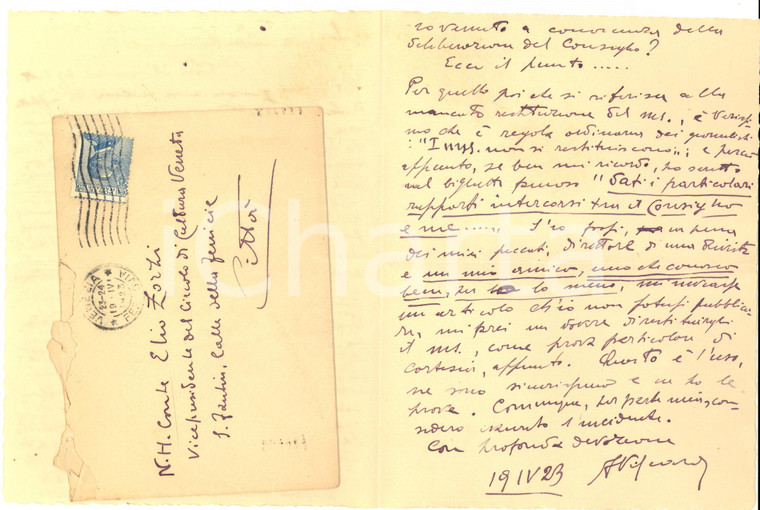 N.H. Conte Elio Zorzi
Vicepresidente del Circolo di Cultura Veneta
S. Fantin, Calle della Fenice
Città
VENEZIA
19 IV
ro venuto a conoscenza della
deliberazione del Consiglio?
Ecco il punto .....
Per quello poi che si riferisce alla
mancata restituzione del ms., è verissi-
mo che è regola ordinaria dei giornalisti
: "I mss. non si restituiscono"; e perciò
appunto, se ben mi ricordo, ho scritto
nel biglietto famoso "dati i particolari
rapporti intercorsi tra il Consiglio
e me ....." S'io fossi, in pena
dei miei peccati, direttore di una Rivista
e un mio amico, uno che conosco
bene, per lo meno, mi inviasse
un articolo ch'io non potessi pubblica-
re, mi farei un dovere di restituirgli
il ms., come prova particolare di
cortesia, appunto. Questo è l'uso,
ne sono sicurissimo e ne ho le
prove. Comunque, per parte mia, con-
sidero esaurito l'incidente.
Con profonda devozione
19 IV 23
iCharta